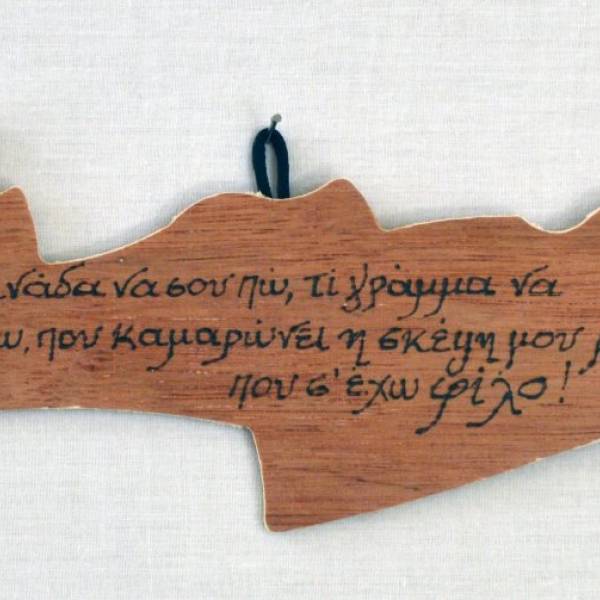 ινάδα να σου πώ, τί γράμμα να
ω, που καμαρώνει η σκέψη μου
που σ' έχω φίλο!